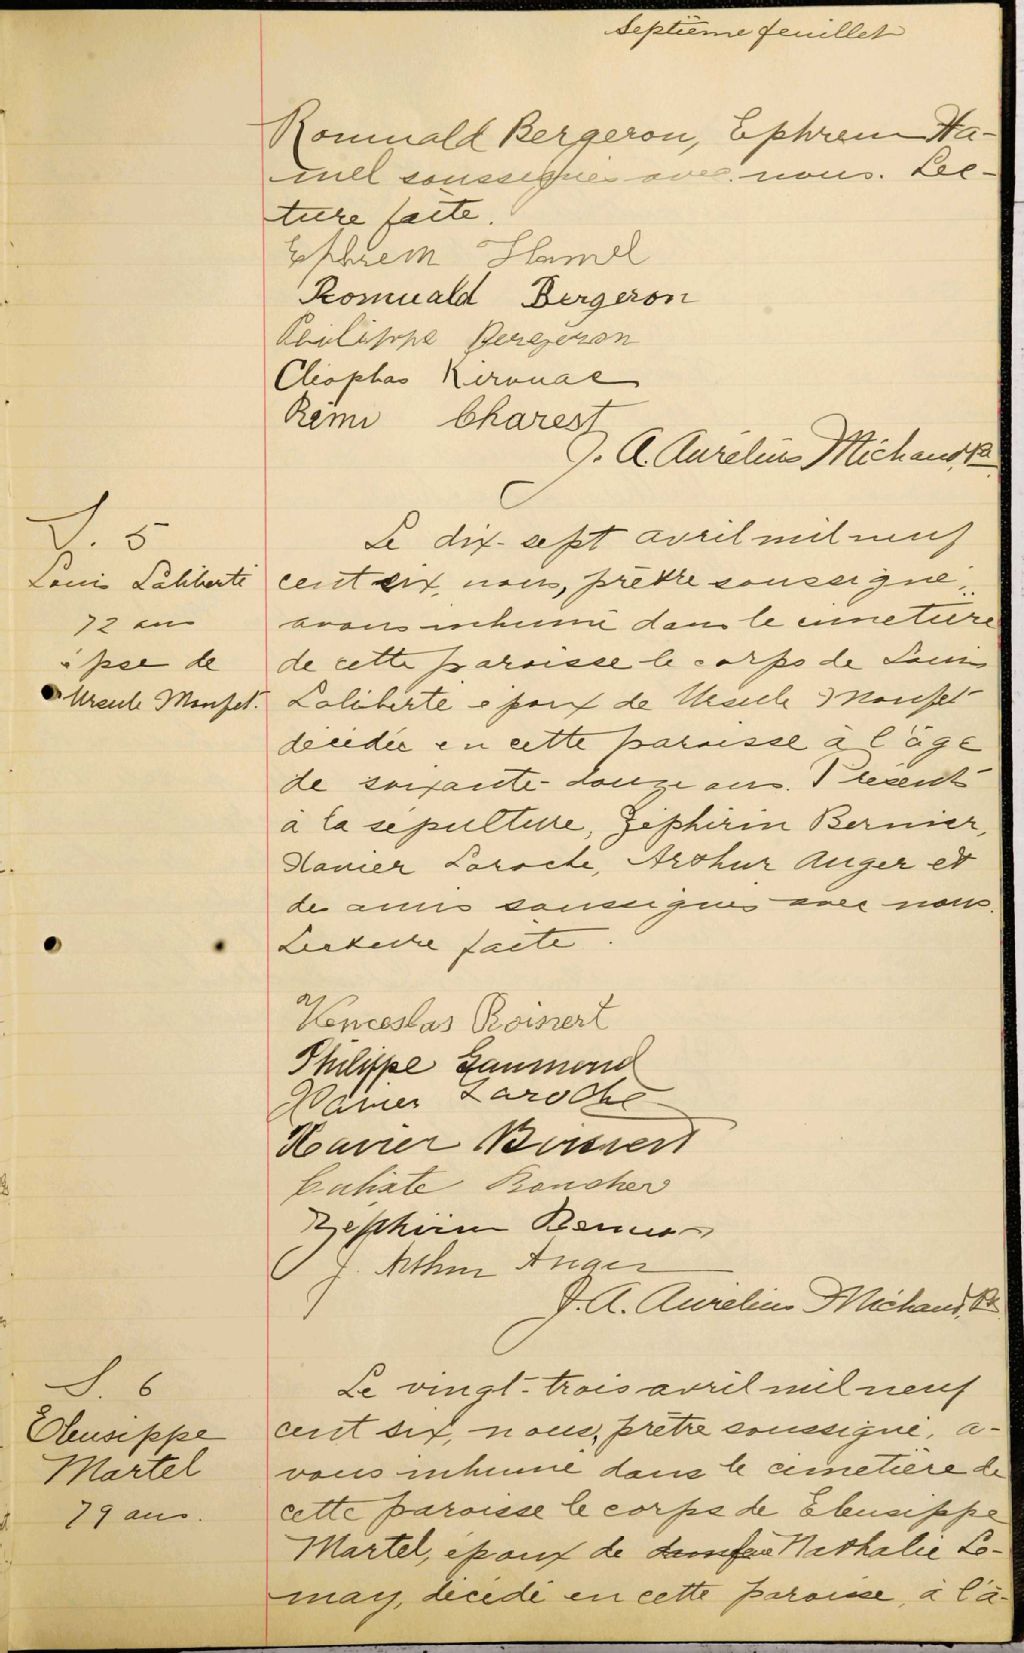 Septième feuillet
Romuald Bergeron, Ephrem Ha-
mel soussignés avec nous. Lec-
ture faite.
Ephrem Hamel
Romuald Bergeron
Philippe Bergeron
Cléophas Kirouac
Rémi Charest
J. A. Aurélius Michaud, Ptre
S. 5
Louis Laliberté
72 ans
épse de
Ursule Monfet.
Le dix-sept avril mil neuf
cent six, nous, prêtre soussigné,
avons inhumé dans le cimetière
de cette paroisse le corps de Louis
Laliberté époux de Ursule Monfet
décédée en cette paroisse à l'âge
de soixante-douze ans. Présents
à la sépulture, Zéphirin Bernier,
Xavier Laroche, Arthur Auger et
des amis soussignés avec nous.
Lecture faite.
Venceslas Boisvert
Philippe Gaumond
Xavier Laroche
Xavier Boisvert
Calixte Boucher
Zéphirin Bernier
J. Arthur Auger
J. A. Aurélius Michaud, Ptre
S. 6
Eleusippe
Martel
79 ans.
Le vingt-trois avril mil neuf
cent six, nous, prêtre soussigné, a-
vons inhumé dans le cimetière de
cette paroisse le corps de Eleusippe
Martel, époux de Nathalie Le-
may, décédé en cette paroisse, à l'â-